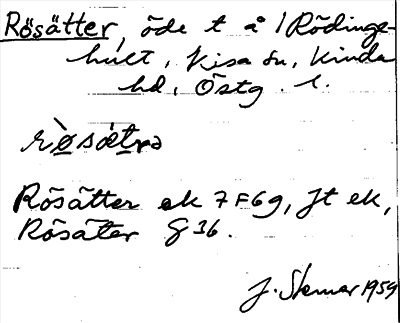 Rösätter, öde t å 1 Rödinge-
hult, Kisa sn, Kinda
hd, Östg. l.
Rösätter ek 7F6g, Jt ek,
Rösäter G 36.
J. Stemar 1959